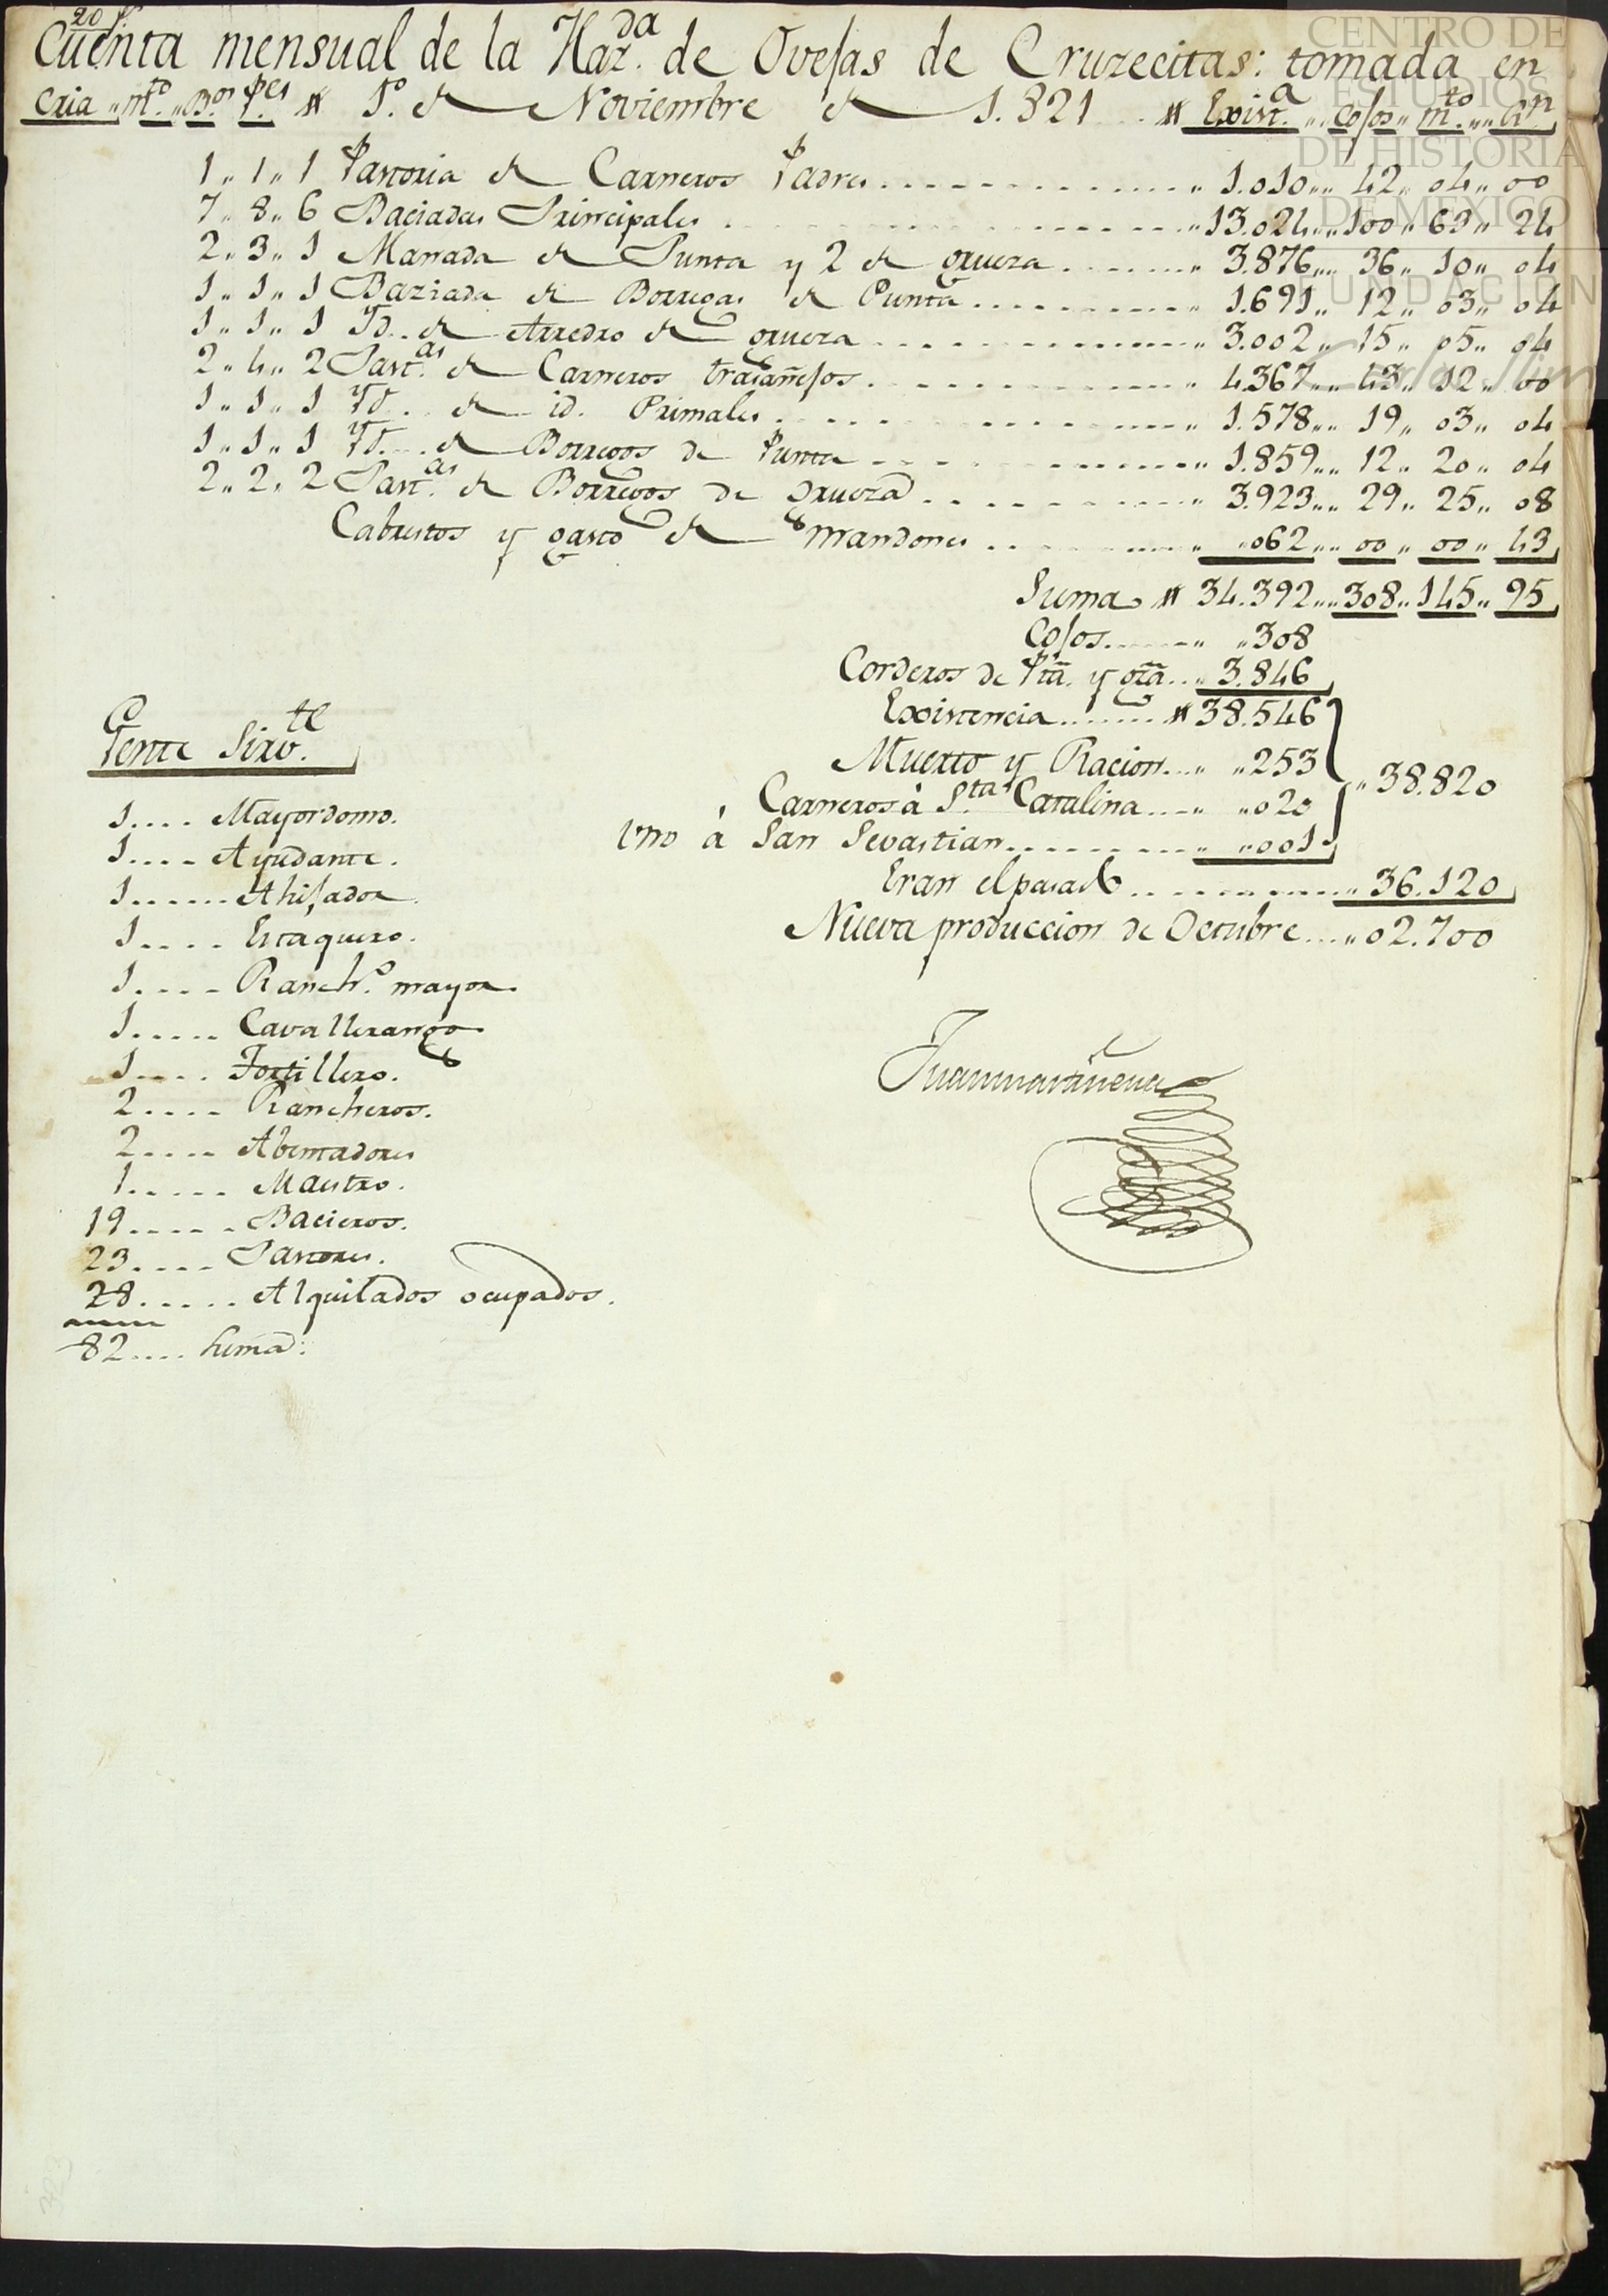 20
Cuenta mensual de la Haz.da de Ovejas de Cruzecitas: tomada en
Cria " m.to " B.os P.es # 1.º de Noviembre de 1.821 # Exist.a " cojos " m.to " G.n
1 " 1 " 1 Pastoria de Carneros Padres " 1.010 " 42 " 04 " 00
7 " 8 " 6 Baciadas Principales " 13.024 " 100 " 63 " 24
2 " 3 " 1 Manada de Punta y 2 de grueza " 3.876 " 36 " 10 " 04
1 " 1 " 1 Baziada de Borregas de Punta " 1.691 " 12 " 03 " 04
1 " 1 " 1 Yd. de Arredro de grueza " 3.002 " 15 " 05 " 04
2 " 4 " 2 Past.as de Carneros trasañejos " 4.367 " 43 " 12 " 00
1 " 1 " 1 Yd. de id. Primales " 1.578 " 19 " 03 " 04
1 " 1 " 1 Yd. de Borregos de Punta " 1.859 " 12 " 20 " 04
2 " 2 " 2 Past.as de Borregos de grueza " 3.923 " 29 " 25 " 08
Cabrestos y gasto de mandones " 062 " 00 " 00 " 43
Suma # 34.392 " 308 " 145 " 95
Cojos " 308
Corderos de Pta. y gza. " 3.846
Existencia # 38.546
Muerto y Racion " 253
" 38.820
Carneros à S.ta Catalina " 020
Vno à San Sevastian " 001
Eran el pasado " 36.120
Nueva produccion de Octubre " 02.700
Gente Sirv.te
1 Mayordomo.
1 Ayudante.
1 Ahijador.
1 Estaquero.
1 Ranch.º mayor.
1 Cavallerango
1 Tortillero.
2 Rancheros.
2 Abentadores
1 Maestro.
19 Bacieros.
23 Pastores.
28 Alquilados ocupados.
82 Suma:
CENTRO DE
ESTUDIOS
DE HISTORIA
DE MEXICO
FUNDACIÓN
Carlos Slim